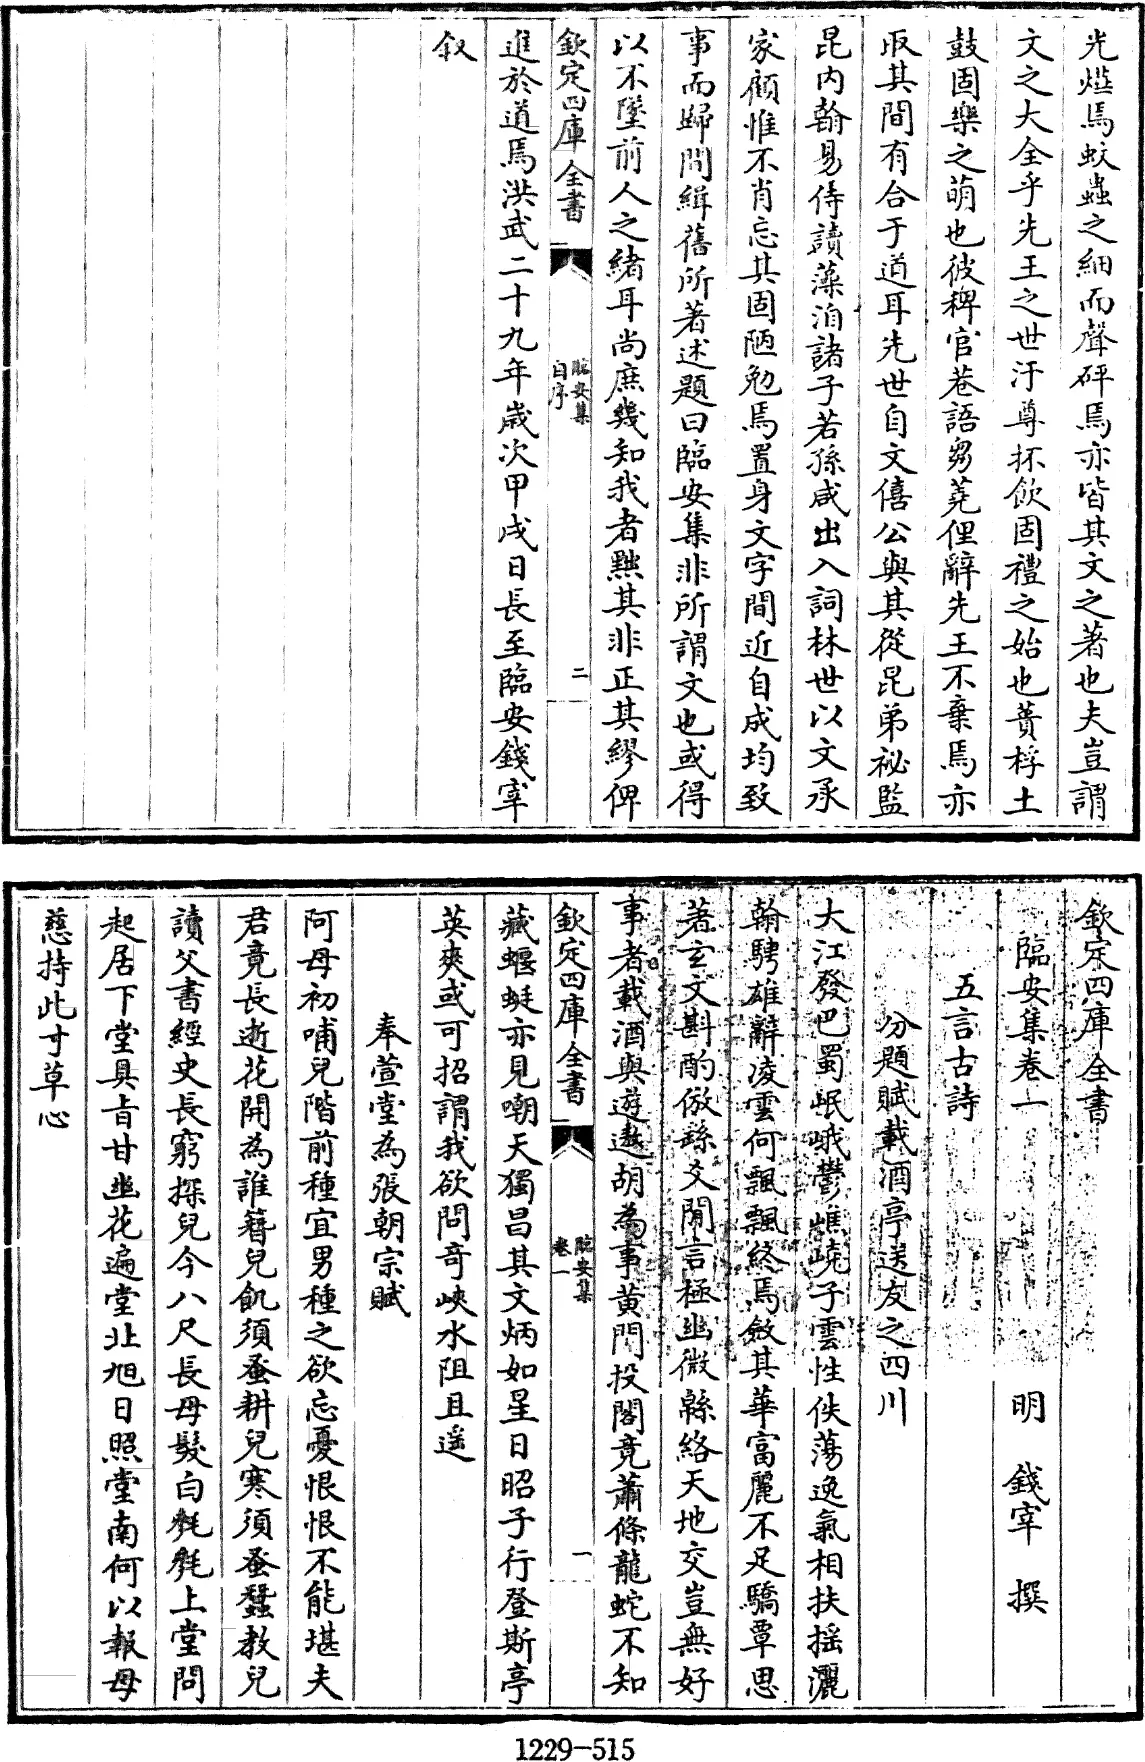 光爓焉蚊蟲之細而聲砰焉亦皆其文之著也夫豈謂
文之大全乎先王之世汙尊抔飲固禮之始也蕢桴土
鼓固樂之萌也彼稗官巷語芻蕘俚辭先王不棄焉亦
取其間有合于道耳先世自文僖公與其從昆弟祕監
昆內翰易侍讀藻洎諸子若孫咸出入詞林世以文承
家顧惟不肖忘其固陋勉焉置身文字間近自成均致
事而歸間緝舊所著述題曰臨安集非所謂文也或得
以不墜前人之緒耳尚庶幾知我者黜其非正其繆俾
欽定四庫全書
臨安集
自序
二
進於道焉洪武二十九年歲次甲戌日長至臨安錢宰
叙
欽定四庫全書
臨安集卷一
明 錢宰 撰
五言古詩
分題賦載酒亭送友之四川
大江發巴蜀岷峨鬱嶕嶢子雲性佚蕩逸氣相扶搖灑
翰騁雄辭凌雲何飄飄終焉斂其華富麗不足驕覃思
著玄文斟酌倣繇爻閒言極幽微緜絡天地交豈無好
事者載酒與遊遨胡為事黃門投閣竟蕭條龍蛇不知
欽定四庫全書
臨安集
卷一
一
藏蝘蜓亦見嘲天獨昌其文炳如星日昭子行登斯亭
英爽或可招謂我欲問奇峽水阻且遥
奉萱堂為張朝宗賦
阿母初哺兒階前種宜男種之欲忘憂恨恨不能堪夫
君竟長逝花開為誰簪兒飢須蚤耕兒寒須蚤蠶教兒
讀父書經史長窮探兒今八尺長母髮白毿毿上堂問
起居下堂具旨甘幽花遍堂北旭日照堂南何以報母
慈持此寸草心
1229-515